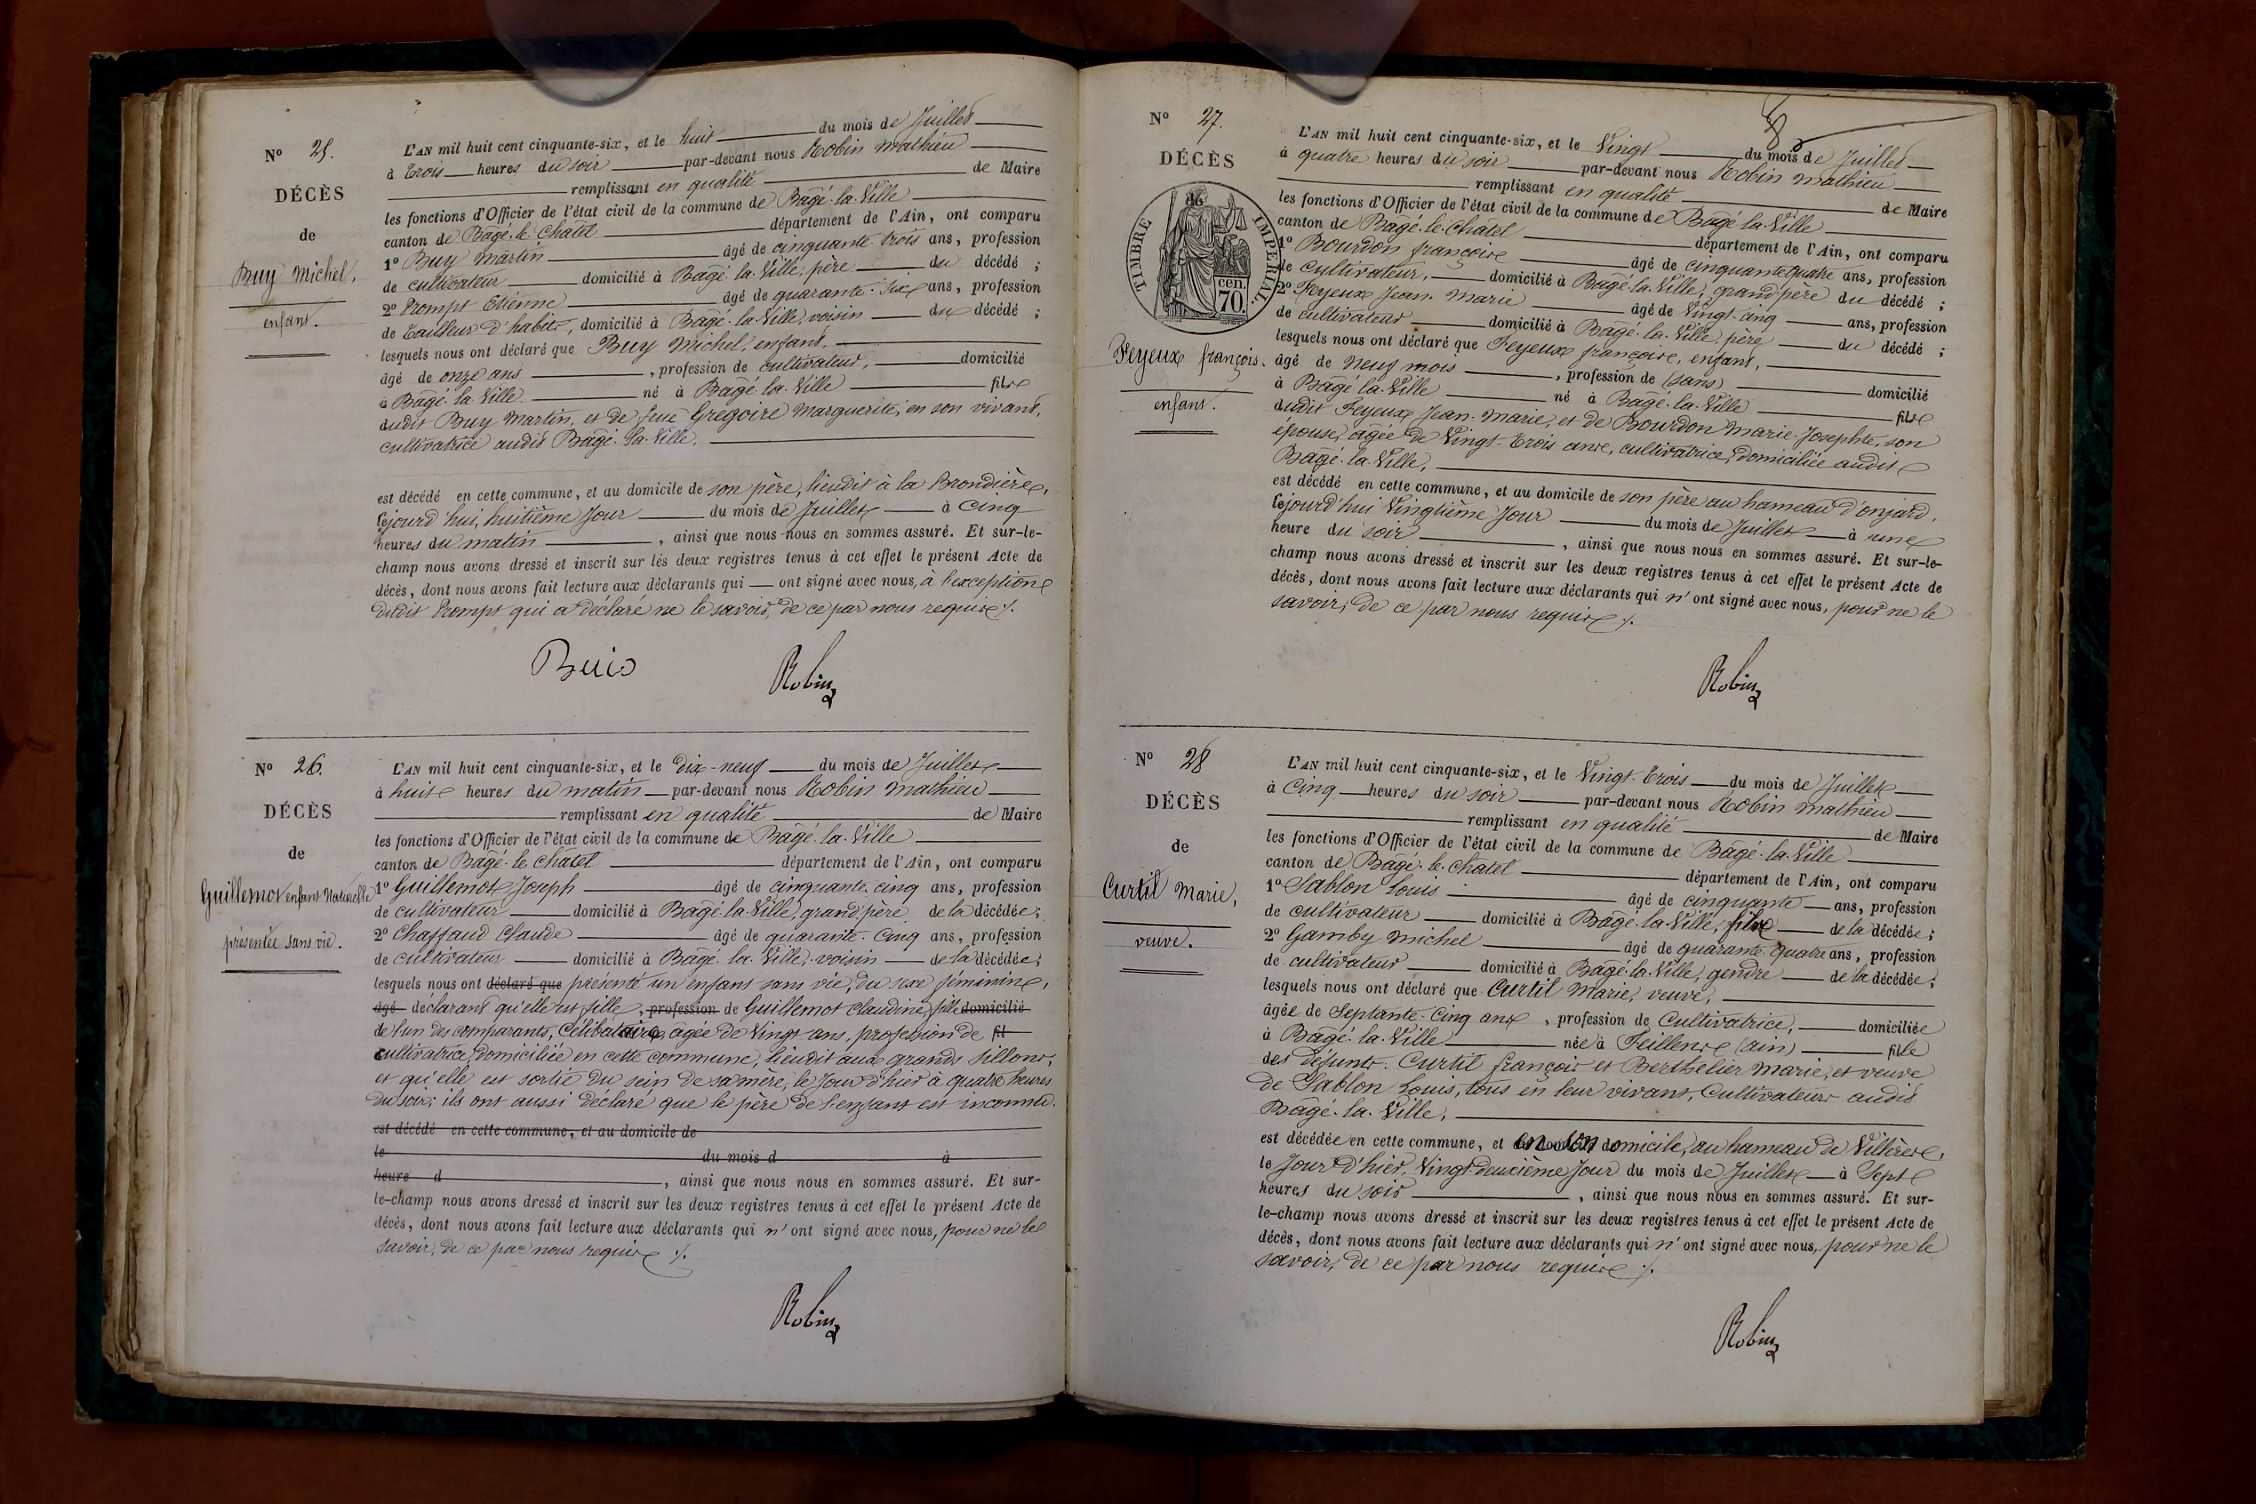 N° 25.
DÉCÈS
de
Buy Michel,
enfant.
L'AN mil huit cent cinquante-six, et le huit du mois de Juillet
à trois heures du soir par-devant nous Robin Mathieu
remplissant en qualité de Maire
les fonctions d'Officier de l'état civil de la commune de Bâgé-la-Ville
canton de Bâgé-le-Châtel département de l'Ain, ont comparu
1° Buy Martin âgé de cinquante-trois ans, profession
de cultivateur domicilié à Bâgé-la-Ville, père du décédé ;
2° Prompt Etienne âgé de quarante-six ans, profession
de tailleur d'habits, domicilié à Bâgé-la-Ville, voisin du décédé ;
lesquels nous ont déclaré que Buy Michel, enfant,
âgé de onze ans, profession de cultivateur, domicilié
à Bâgé-la-Ville né à Bâgé-la-Ville fils
dudit Buy Martin, et de feue Grégoire Marguerite, en son vivant,
cultivatrice audit Bâgé-la-Ville.
est décédé en cette commune, et au domicile de son père, lieudit à la Brondière,
cejourd'hui, huitième Jour du mois de Juillet à Cinq
heures du matin, ainsi que nous nous en sommes assuré. Et sur-le-
champ nous avons dressé et inscrit sur les deux registres tenus à cet effet le présent Acte de
décès, dont nous avons fait lecture aux déclarants qui ont signé avec nous, à l'exception
dudit Prompt qui a déclaré ne le savoir, de ce par nous requis ./.
Buis Robin
N° 26.
DÉCÈS
de
Guillemot enfant Naturelle
présentée sans vie.
L'AN mil huit cent cinquante-six, et le dix-neuf du mois de Juillet
à huit heures du matin par-devant nous Robin Mathieu
remplissant en qualité de Maire
les fonctions d'Officier de l'état civil de la commune de Bâgé-la-Ville
canton de Bâgé-le-Châtel département de l'Ain, ont comparu
1° Guillemot Joseph âgé de cinquante-cinq ans, profession
de cultivateur domicilié à Bâgé-la-Ville, grand'père de la décédée ;
2° Chaffaud Claude âgé de quarante-cinq ans, profession
de cultivateur domicilié à Bâgé-la-Ville, voisin de la décédée ;
lesquels nous ont déclaré que présenté un enfant sans vie, du sexe féminin,
âgé déclarant qu'elle est fille, profession de Guillemot Claudine, fille domicilié
de l'un des comparants, Célibataire, agée de Vingt ans, profession de fil
cultivatrice, domiciliée en cette commune, lieudit aux grands Sillons,
et qu'elle est sortie du sein de sa mère, le Jour d'hier à quatre heures
du soir; ils ont aussi déclaré que le père de l'enfant est inconnu.
est décédé en cette commune, et au domicile de
le du mois d à
heure d, ainsi que nous nous en sommes assuré. Et sur-
le-champ nous avons dressé et inscrit sur les deux registres tenus à cet effet le présent Acte de
décès, dont nous avons fait lecture aux déclarants qui n'ont signé avec nous, pour ne le
savoir, de ce par nous requis ./.
Robin
8
N° 27.
DÉCÈS
TIMBRE IMPÉRIAL.
cen.
70.
Feyeux françois.
enfant.
L'AN mil huit cent cinquante-six, et le Vingt du mois de Juillet
à quatre heures du soir par-devant nous Robin Mathieu
remplissant en qualité de Maire
les fonctions d'Officier de l'état civil de la commune de Bâgé-la-Ville
canton de Bâgé-le-Châtel département de l'Ain, ont comparu
1° Bourdon françois âgé de cinquante-quatre ans, profession
de cultivateur, domicilié à Bâgé-la-Ville, grand'père du décédé ;
2° Feyeux Jean-Marie âgé de Vingt-cinq ans, profession
de cultivateur domicilié à Bâgé-la-Ville, père du décédé ;
lesquels nous ont déclaré que Feyeux françois, enfant,
âgé de Neuf mois, profession de (sans) domicilié
à Bâgé-la-Ville né à Bâgé-la-Ville fils
dudit Feyeux Jean-Marie, et de Bourdon Marie-Josephte, son
épouse, agée de Vingt-trois ans, cultivatrice, domiciliée audit
Bâgé-la-Ville,
est décédé en cette commune, et au domicile de son père au hameau d'onjard.
cejourd'hui Vingtième Jour du mois de Juillet à une
heure du soir, ainsi que nous nous en sommes assuré. Et sur-le-
champ nous avons dressé et inscrit sur les deux registres tenus à cet effet le présent Acte de
décès, dont nous avons fait lecture aux déclarants qui n'ont signé avec nous, pour ne le
savoir, de ce par nous requis ./.
Robin
N° 28
DÉCÈS
de
Curtil Marie,
veuve.
L'AN mil huit cent cinquante-six, et le Vingt-trois du mois de Juillet
à Cinq heures du soir par-devant nous Robin Mathieu
remplissant en qualité de Maire
les fonctions d'Officier de l'état civil de la commune de Bâgé-la-Ville
canton de Bâgé-le-Châtel département de l'Ain, ont comparu
1° Sablon Louis âgé de cinquante ans, profession
de cultivateur domicilié à Bâgé-la-Ville, fils de la décédée ;
2° Gamby Michel âgé de quarante-quatre ans, profession
de cultivateur domicilié à Bâgé-la-Ville, gendre de la décédée ;
lesquels nous ont déclaré que Curtil Marie, veuve,
âgée de Septante-Cinq ans, profession de Cultivatrice, domiciliée
à Bâgé-la-Ville née à Feillens (ain) fille
des défunts Curtil françois et Berthelier Marie, et veuve
de Sablon Louis, tous en leur vivant, Cultivateurs audit
Bâgé-la-Ville,
est décédée en cette commune, et en son domicile, au hameau de Villières,
le Jour d'hier, Vingt-deuxième Jour du mois de Juillet à Sept
heures du soir, ainsi que nous nous en sommes assuré. Et sur-
le-champ nous avons dressé et inscrit sur les deux registres tenus à cet effet le présent Acte de
décès, dont nous avons fait lecture aux déclarants qui n'ont signé avec nous, pour ne le
savoir, de ce par nous requis ./.
Robin